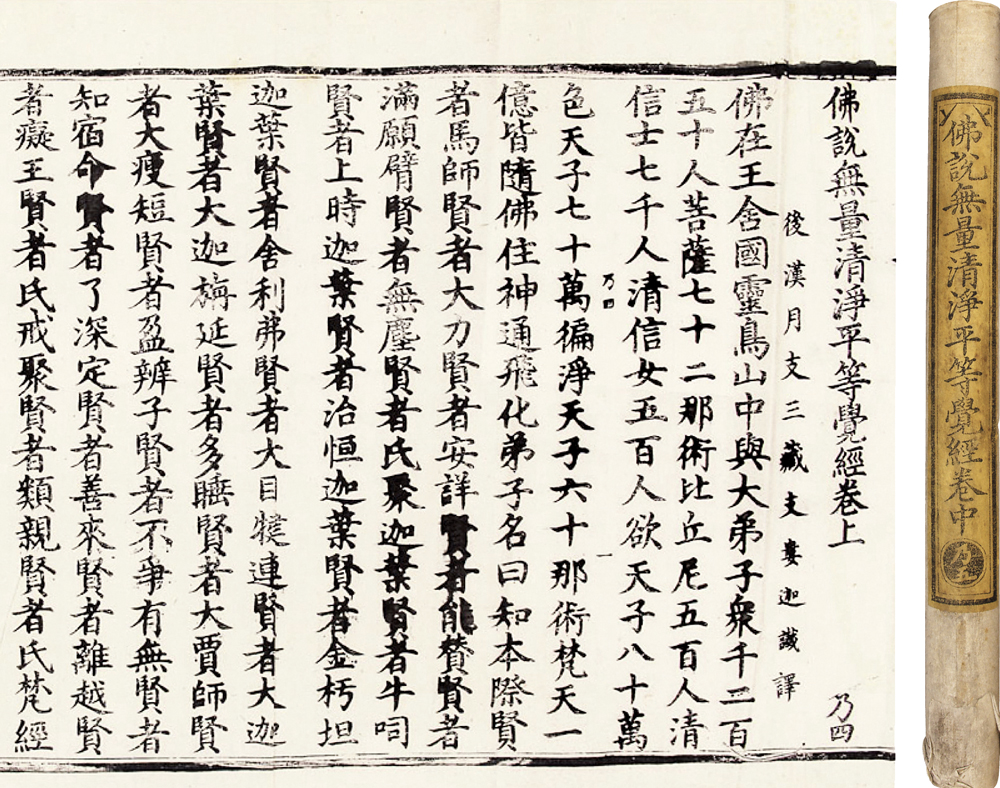 佛說無量清淨平等覺經卷上 乃四
後漢月支三藏支婁迦讖譯
佛在王舍國靈鳥山中與大弟子衆千二百
五十人菩薩七十二那術比丘尼五百人清
信士七千人清信女五百人欲天子八十萬
乃四 一
色天子七十萬徧淨天子六十那術梵天一
億皆隨佛住神通飛化弟子名曰知本際賢
者馬師賢者大力賢者安詳賢者能賛賢者
滿願臂賢者無塵賢者氏聚迦葉賢者牛呞
賢者上時迦葉賢者治恒迦葉賢者金杇坦
迦葉賢者舍利弗賢者大目揵連賢者大迦
葉賢者大迦旃延賢者多睡賢者大賈師賢
者大瘦短賢者盈辨子賢者不爭有無賢者
知宿命賢者了深定賢者善來賢者離越賢
者癡王賢者氏戒聚賢者類親賢者氏梵經
佛說無量清淨平等覺經卷中